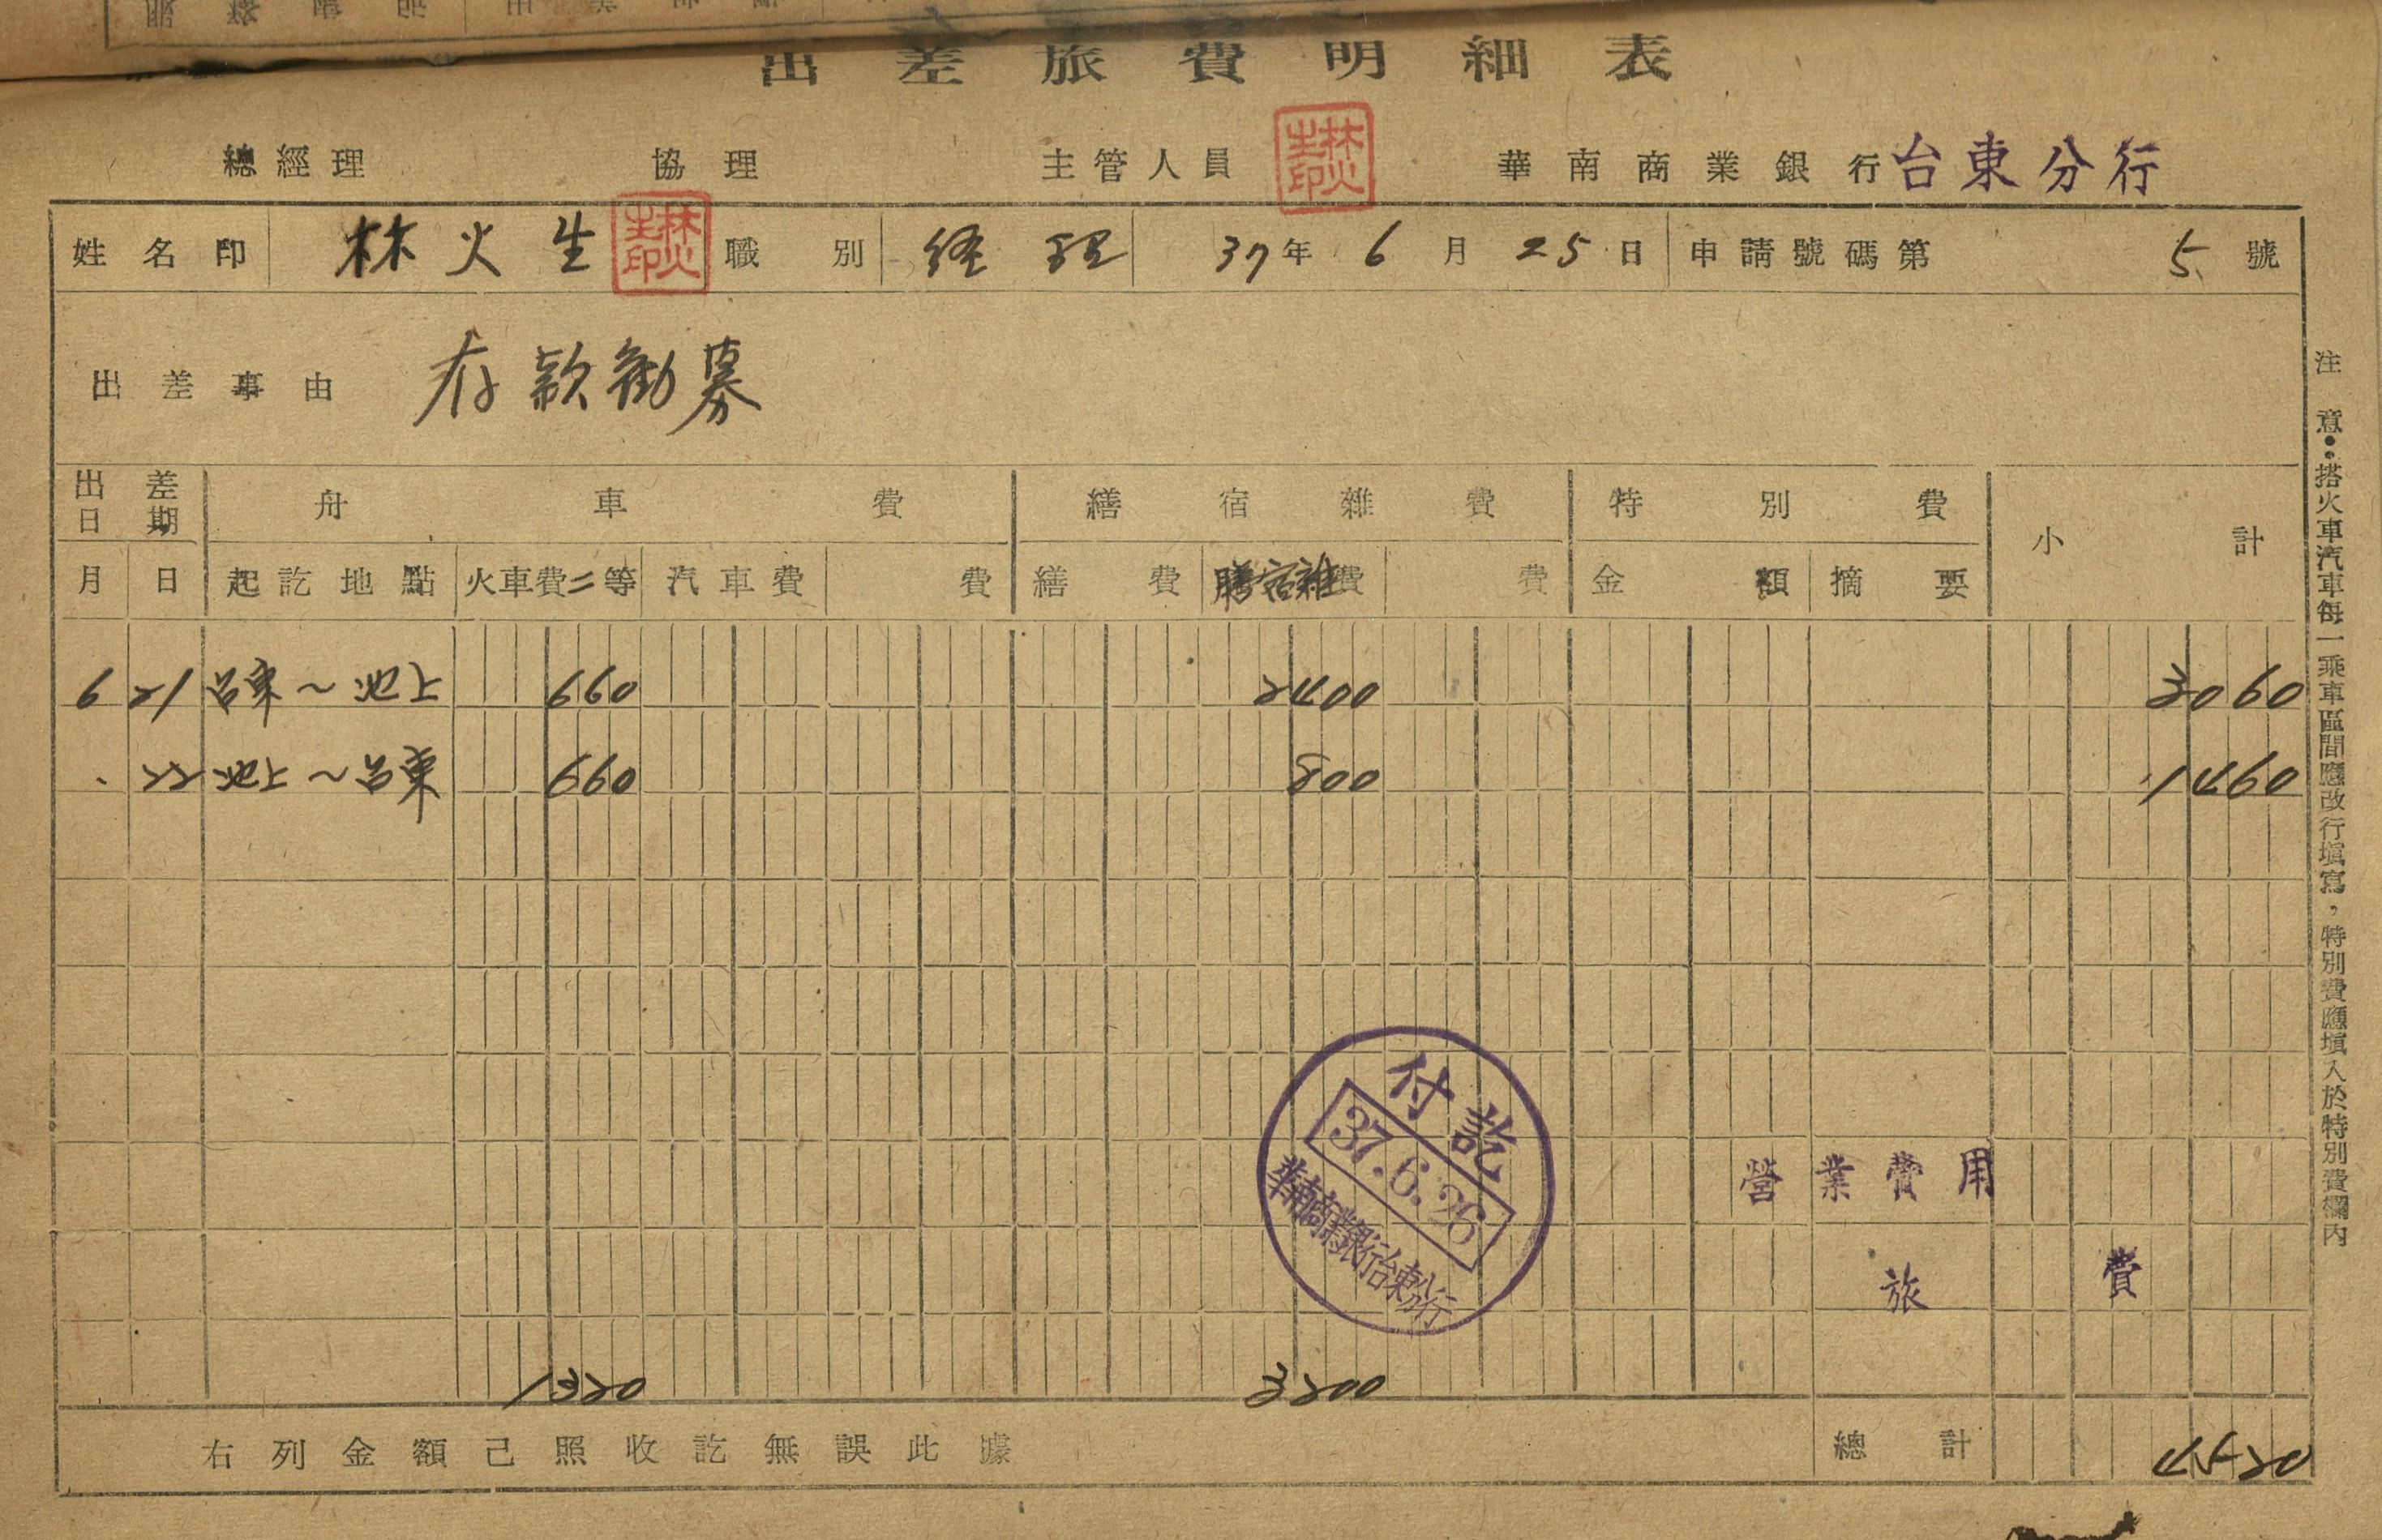 出差旅費明細表
總經理 協理 主管人員 林火生印 華南商業銀行台東分行
姓名印 林火生 林火生印 職別 経理 37年6月25日 申請號碼第5號
出差事由 存款勧募
出差日期 舟車費 繕宿雜費 特別費 小計
月 日 起訖地點 火車費二等 汽車費 費 繕費 膳宿雜費 費 金額 摘要
6 21 台東～池上 660 2400 3060
〃 22 池上～台東 660 800 1460
付訖
37.6.26
華南商業銀行台東分行
營業費用
旅費
1320 3200
右列金額己照收訖無誤此據 總計 4520
注意：搭火車汽車每一乘車區間應改行填寫，特別費應填入於特別費欄內